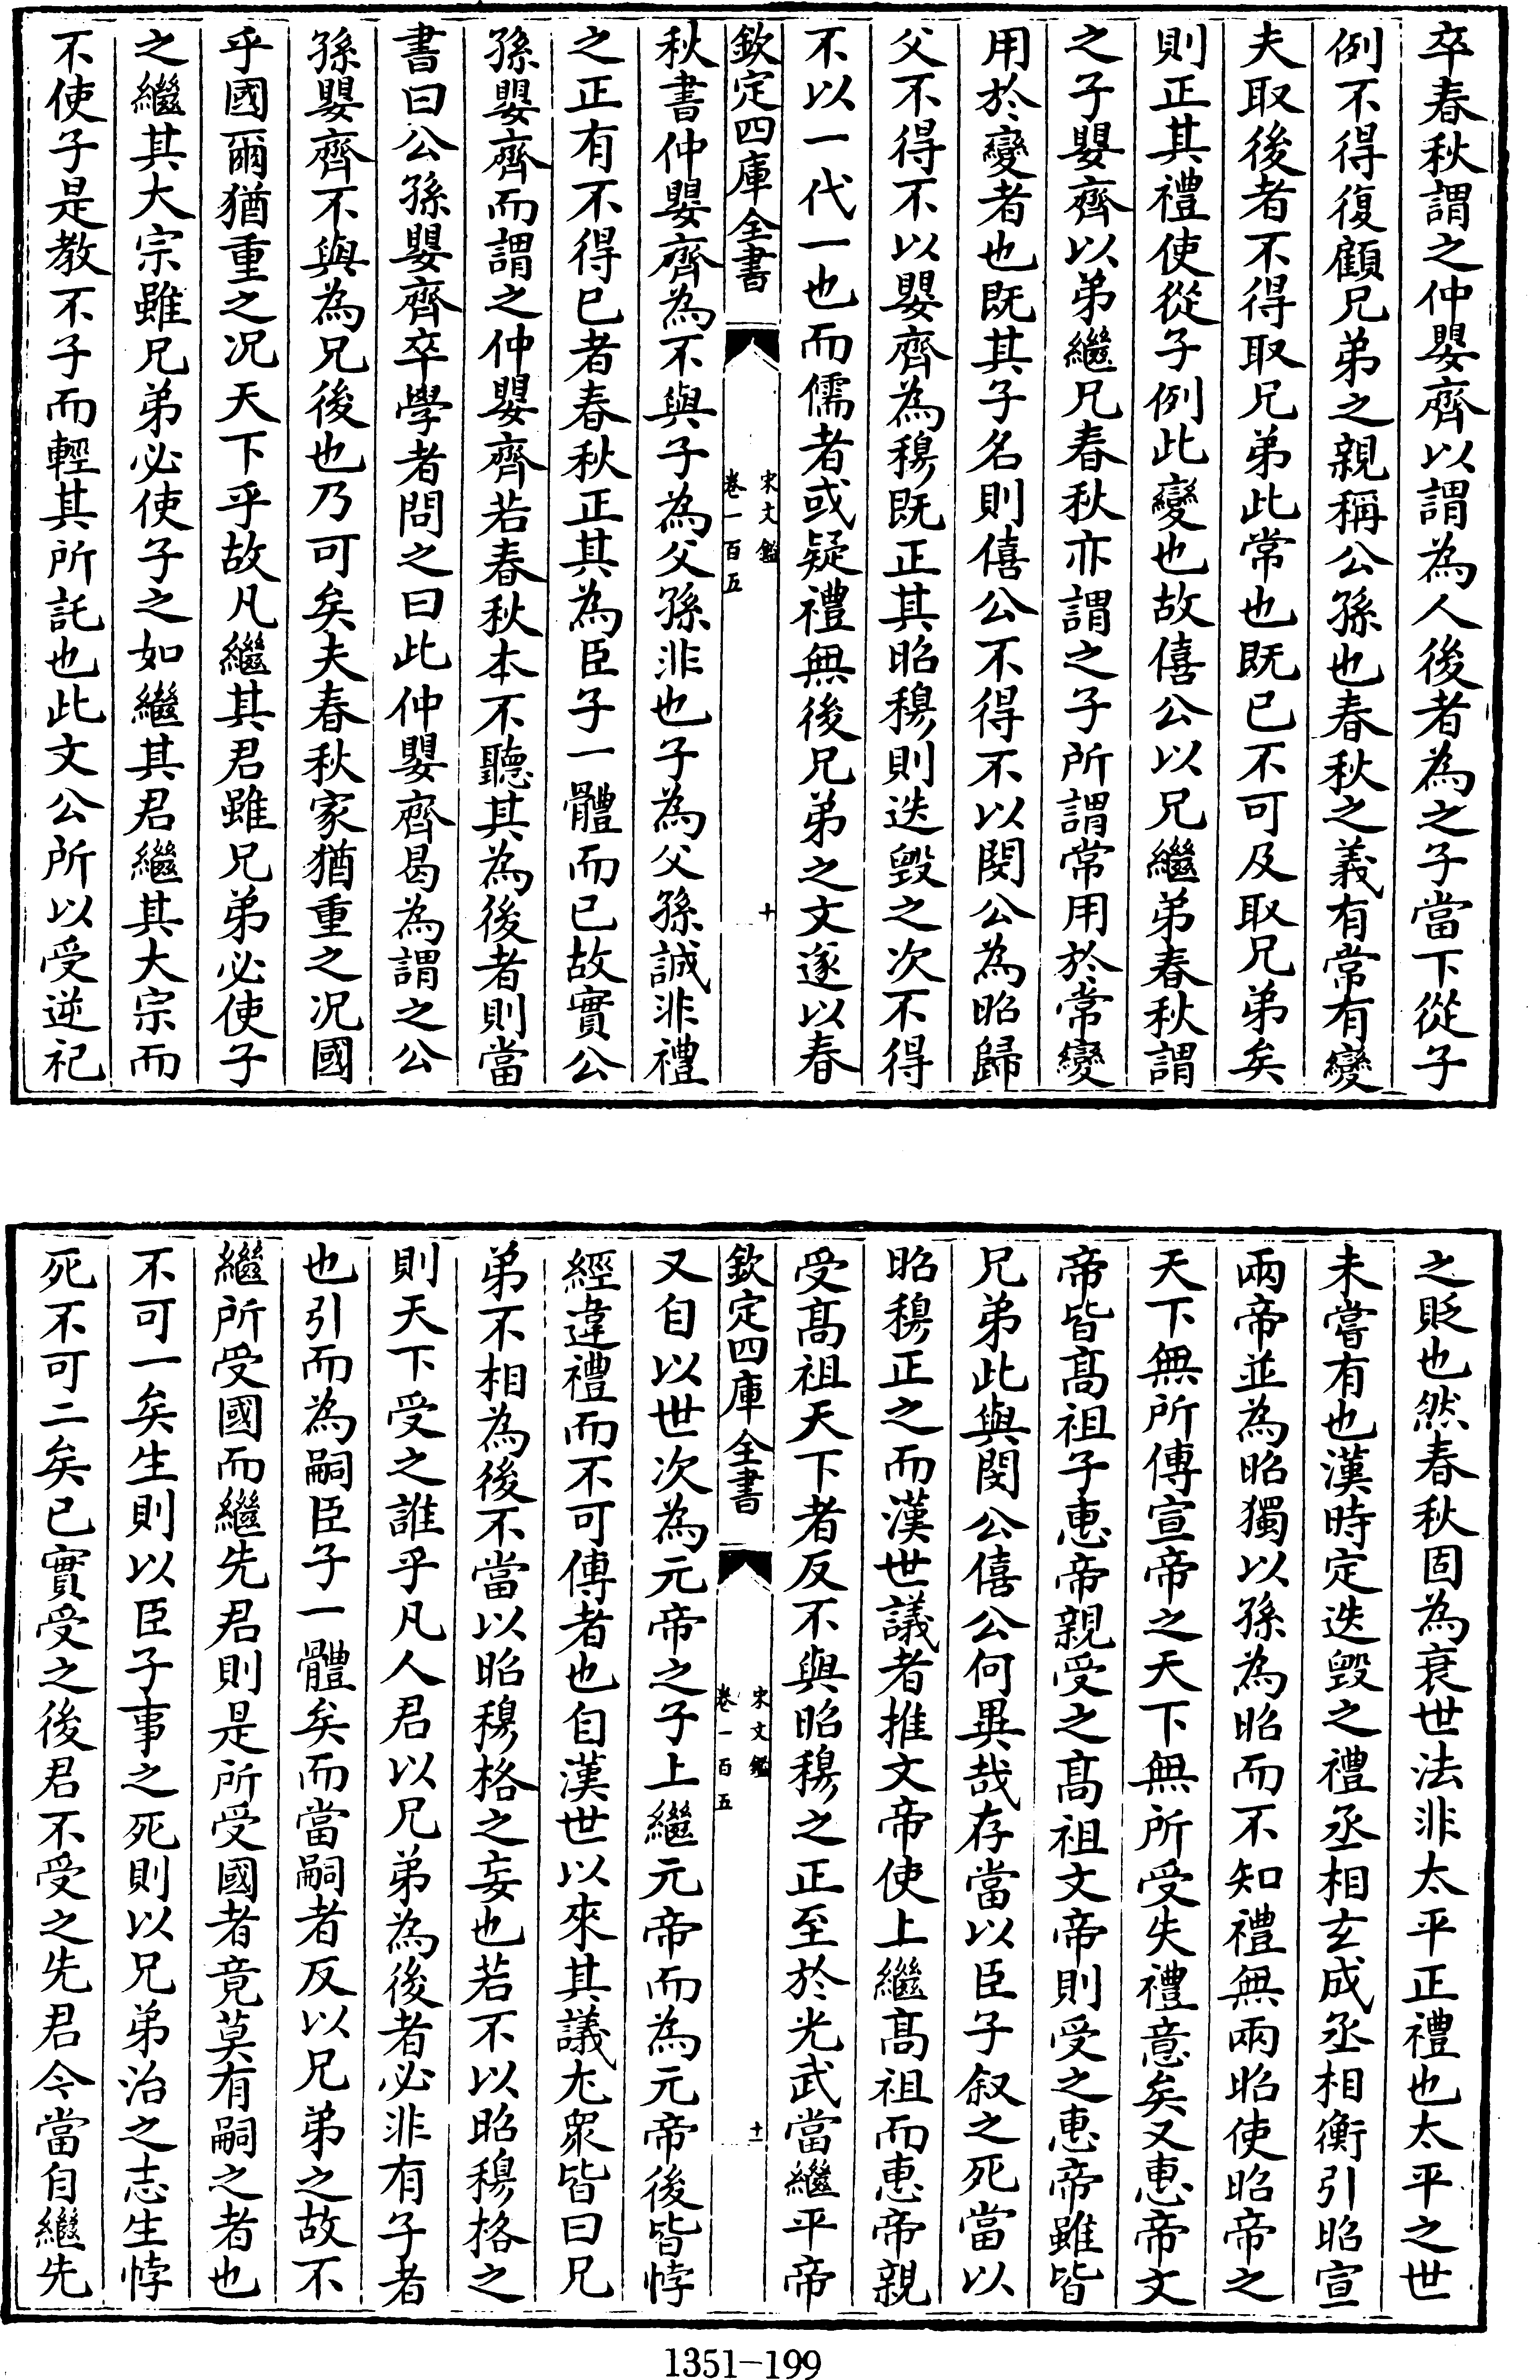 卒春秋謂之仲嬰齊以謂為人後者為之子當下從子
例不得復顧兄弟之親稱公孫也春秋之義有常有變
夫取後者不得取兄弟此常也既已不可及取兄弟矣
則正其禮使從子例此變也故僖公以兄繼弟春秋謂
之子嬰齊以弟繼兄春秋亦謂之子所謂常用於常變
用於變者也既其子名則僖公不得不以閔公為昭歸
父不得不以嬰齊為穆既正其昭穆則迭毀之次不得
不以一代一也而儒者或疑禮無後兄弟之文遂以春
欽定四庫全書
宋文鑑
卷一百五
十
秋書仲嬰齊為不與子為父孫非也子為父孫誠非禮
之正有不得已者春秋正其為臣子一體而已故實公
孫嬰齊而謂之仲嬰齊若春秋本不聽其為後者則當
書曰公孫嬰齊卒學者問之曰此仲嬰齊曷為謂之公
孫嬰齊不與為兄後也乃可矣夫春秋家猶重之况國
乎國爾猶重之况天下乎故凡繼其君雖兄弟必使子
之繼其大宗雖兄弟必使子之如繼其君繼其大宗而
不使子是教不子而輕其所託也此文公所以受逆祀
之貶也然春秋固為衰世法非太平正禮也太平之世
未嘗有也漢時定迭毀之禮丞相玄成丞相衡引昭宣
兩帝並為昭獨以孫為昭而不知禮無兩昭使昭帝之
天下無所傳宣帝之天下無所受失禮意矣又惠帝文
帝皆髙祖子惠帝親受之髙祖文帝則受之惠帝雖皆
兄弟此與閔公僖公何異哉存當以臣子叙之死當以
昭穆正之而漢世議者推文帝使上繼髙祖而惠帝親
受髙祖天下者反不與昭穆之正至於光武當繼平帝
欽定四庫全書
宋文鑑
卷一百五
十一
又自以世次為元帝之子上繼元帝而為元帝後皆悖
經違禮而不可傳者也自漢世以來其議尤衆皆曰兄
弟不相為後不當以昭穆格之妄也若不以昭穆格之
則天下受之誰乎凡人君以兄弟為後者必非有子者
也引而為嗣臣子一體矣而當嗣者反以兄弟之故不
繼所受國而繼先君則是所受國者竟莫有嗣之者也
不可一矣生則以臣子事之死則以兄弟治之志生悖
死不可二矣已實受之後君不受之先君今當自繼先
1351-199